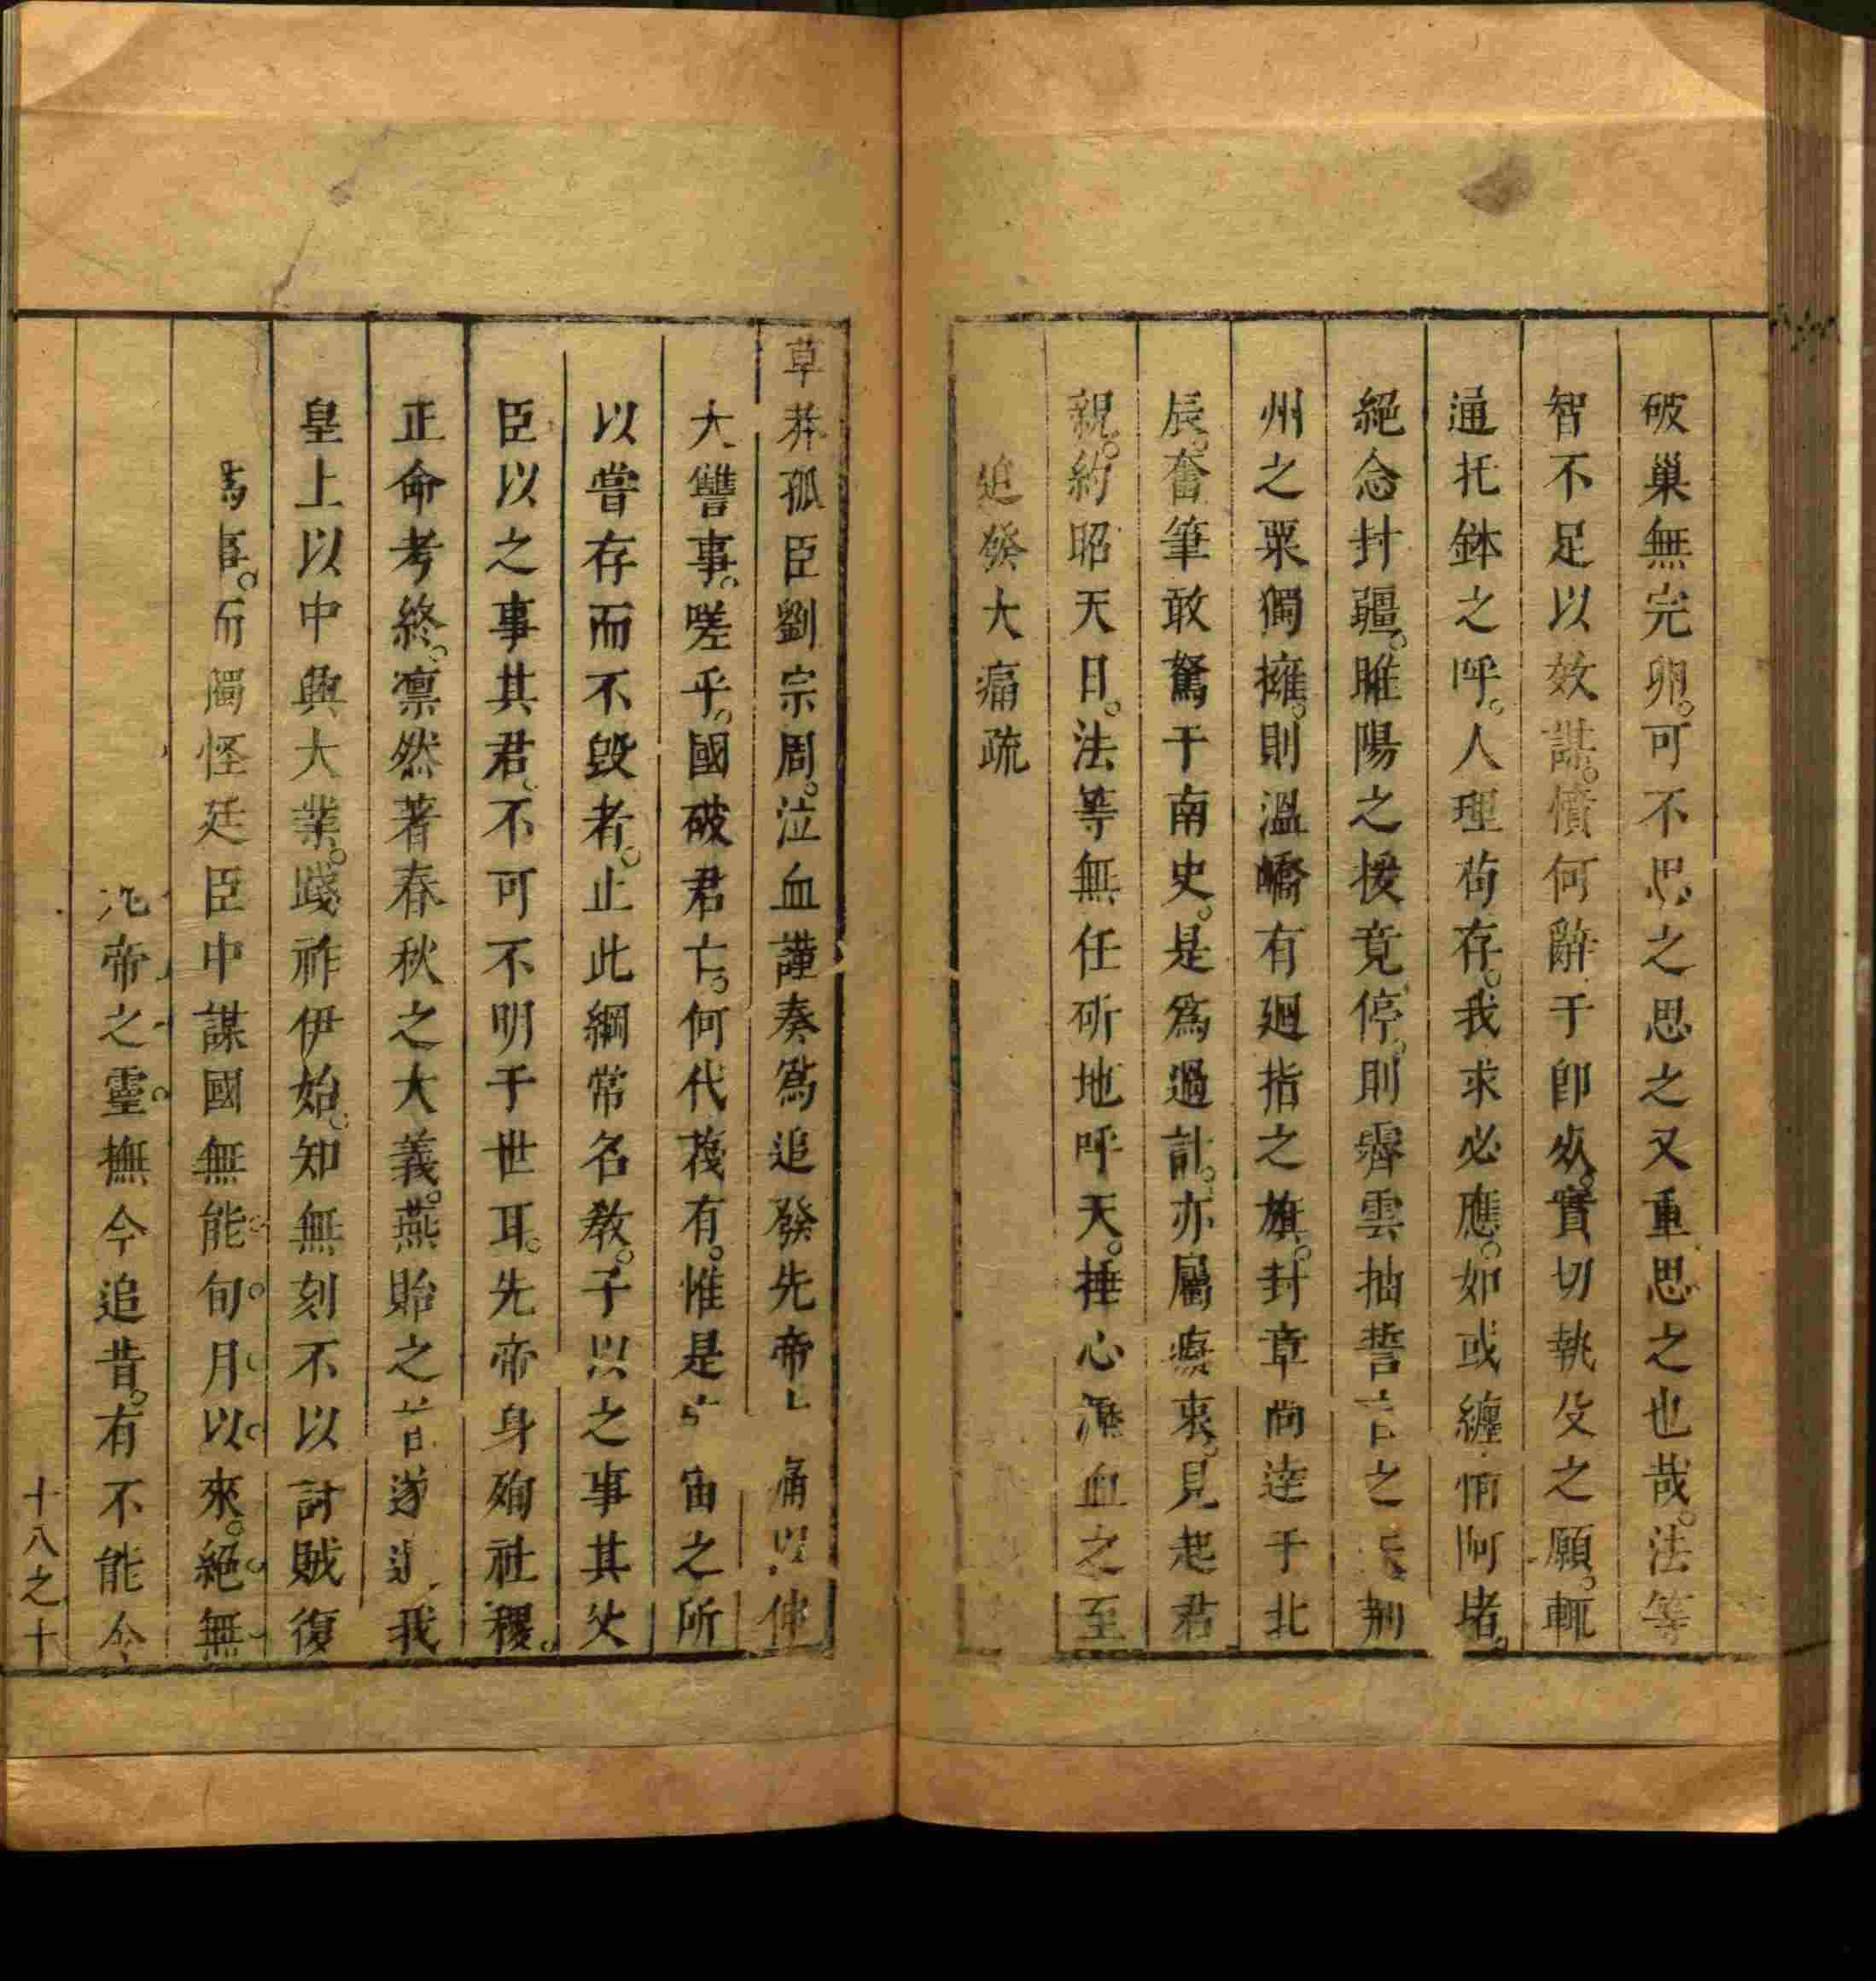 破巢無完卵。可不思之思之又重思之也哉。法等
智不足以效謀。憤何辭于卽死。實切執殳之願。輒
通托鉢之呼。人理苟存。我求必應。如或纏情阿堵。
絕念封疆。睢陽之援竟停。則霽雲抽誓言之矢。荆
州之粟獨擁。則溫嶠有廻指之旗。封章尚達于北
辰。奮筆敢驚于南史。是爲過計。亦屬癡衷。見起君
親。約昭天日。法等無任斫地呼天。捶心灑血之至
追發大痛疏
草莽孤臣劉宗周。泣血謹奏爲追發先帝大痛以伸
大讐事。嗟乎。國破君亡。何代蔑有。惟是宇宙之所
以嘗存而不毀者。止此綱常名教。子以之事其父
臣以之事其君。不可不明于世耳。先帝身殉社稷。
正命考終。凛然著春秋之大義。燕貽之 遂 我
皇上以中興大業。踐祚伊始。知無刻不以討賊復
事。而獨怪廷臣中謀國無能旬月以來。絕無
帝之靈撫今追昔。有不能今
十八之十